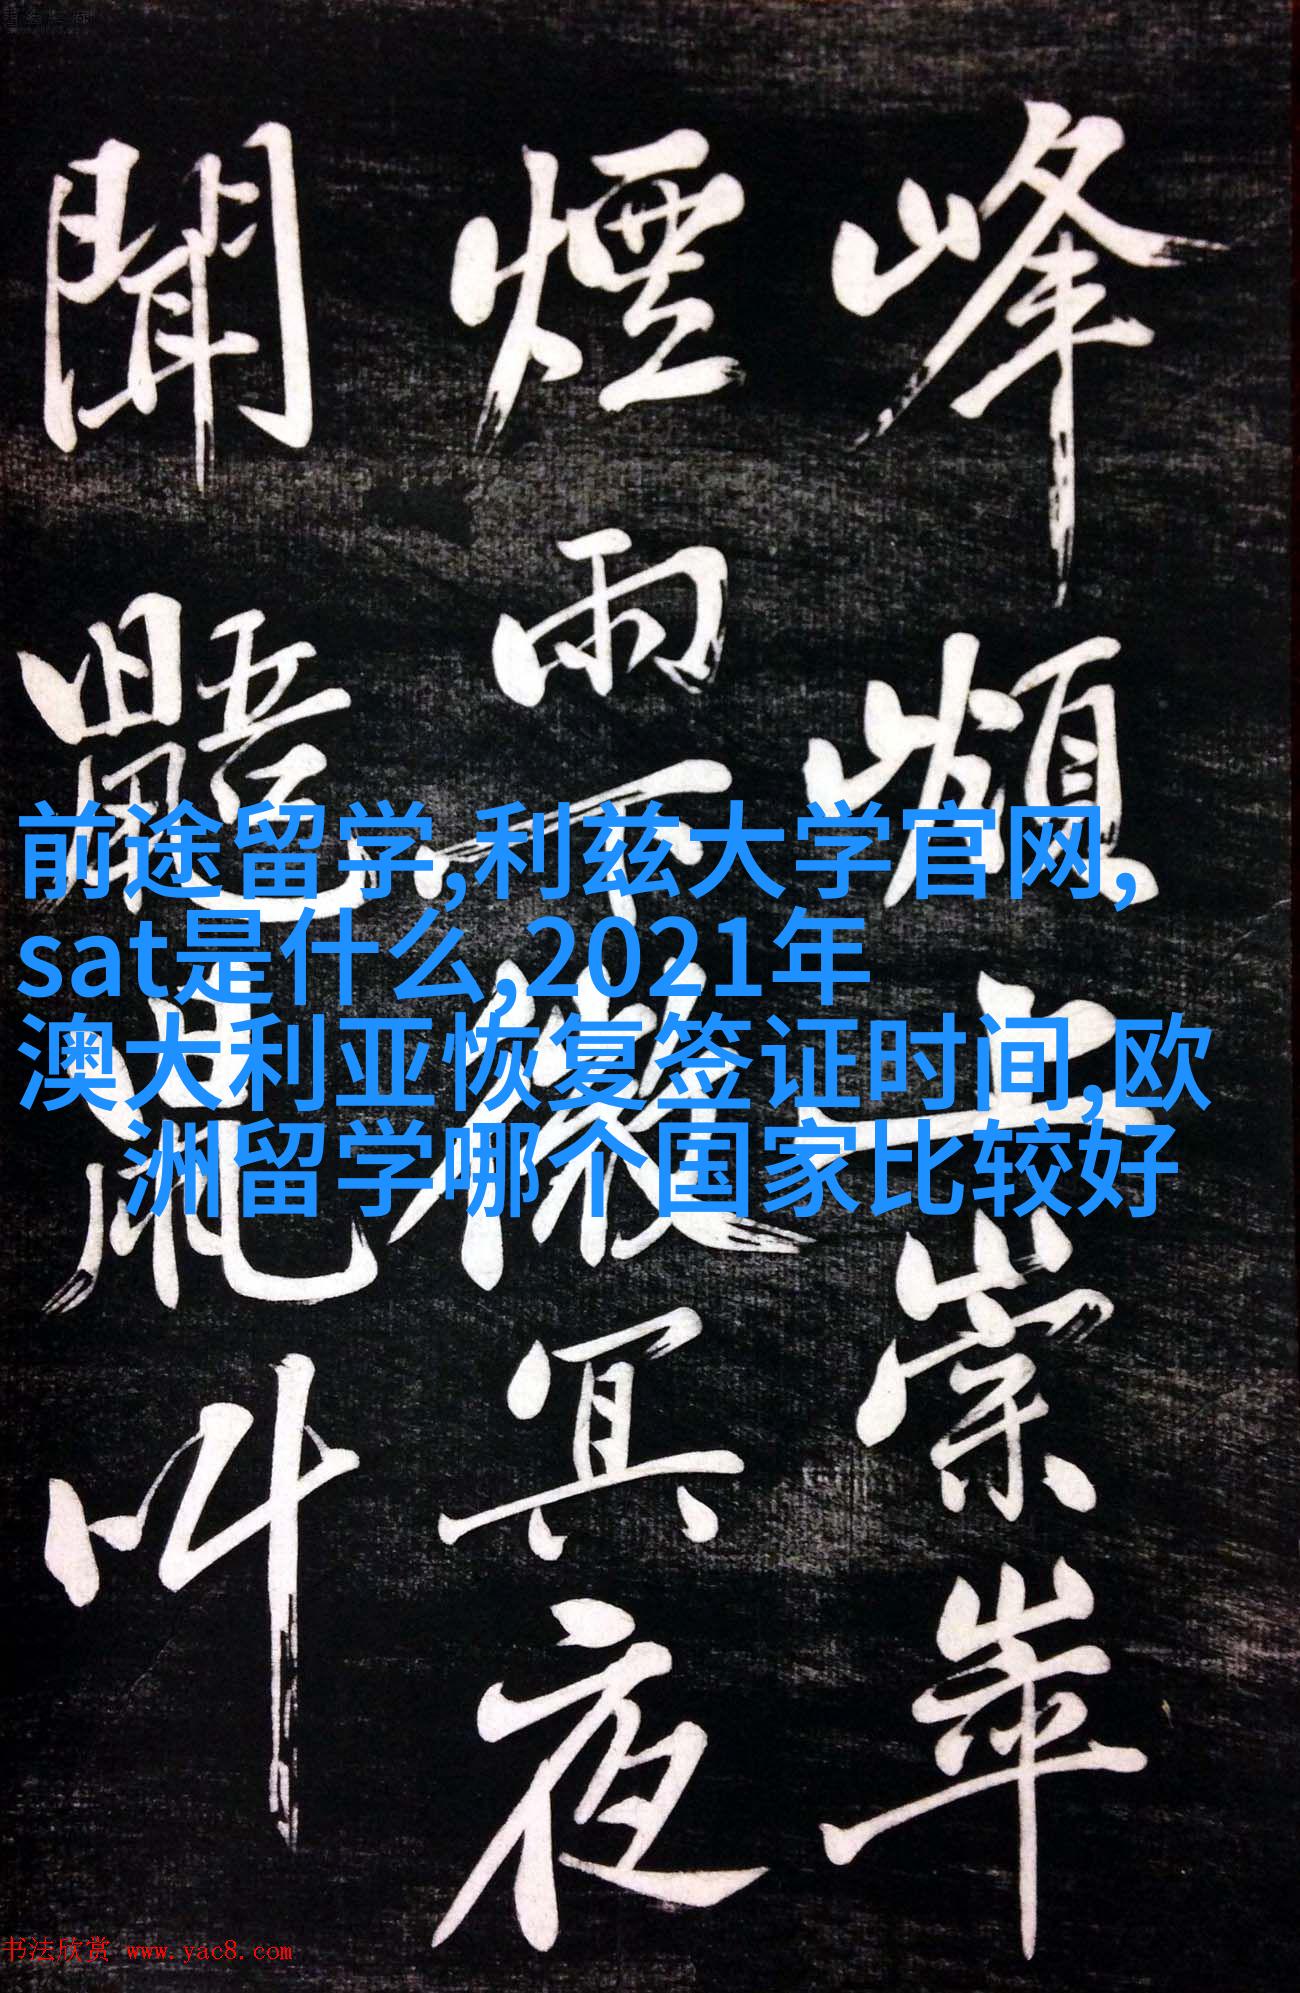 峰上崇崒
煙雨下微冥夜
聞鼯鼠叫
前途留学,利兹大学官网,
sat是什么,2021年
澳大利亚恢复签证时间,欧
洲留学哪个国家比较好
书法欣赏 www.yac8.com